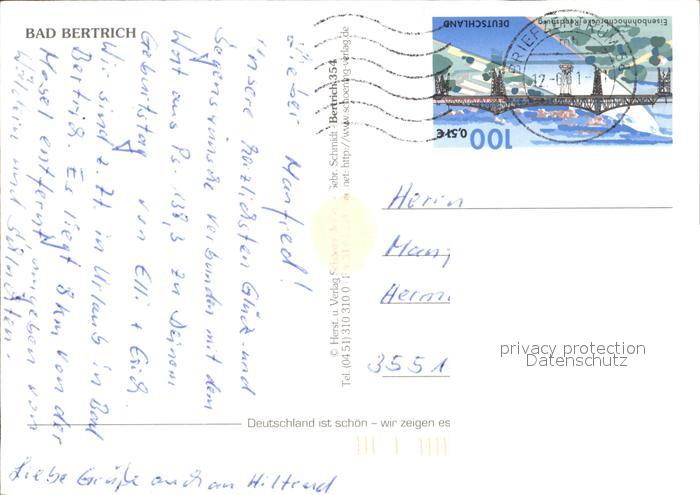 BAD BERTRICH
Lieber Manfred!
Unsere herzlichsten Glück- und
Segenswünsche verbunden mit dem
Wort aus Ps. 138,3 zu Deinem
Geburtstag von Elli + Erich.
Wir sind z. Zt. in Urlaub in Bad
Bertrich. Es liegt 8 km von der
Mosel entfernt, umgeben von
Wäldern und
Liebe Grüße auch an Hiltrud
© Herst. u. Verlag Schöning & Gebr. Schmidt · Bertrich.354
Tel. (04 51) 310 310 0 net: http://www.schoening-verlag.de
DEUTSCHLAND
Eisenbahnhochbrücke Rendsburg
100
0,51€
BRIEFZENTRUM
12.-
Herrn
Man
Herm
3551
privacy protection
Datenschutz
Deutschland ist schön – wir zeigen es